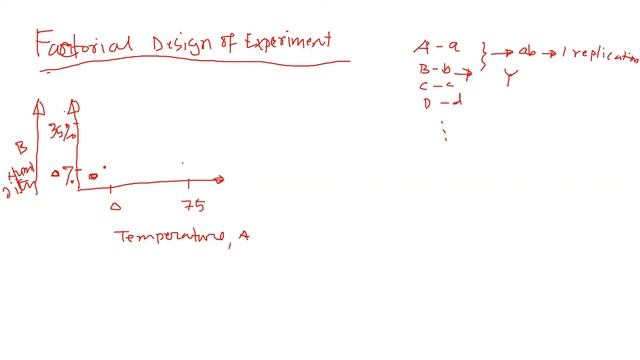 Factorial Design of Experiment
A - a
B - b → ab → 1 replication
C - c
Y
D - d
35%
B
Humidity
0%
0
75
Temperature, A